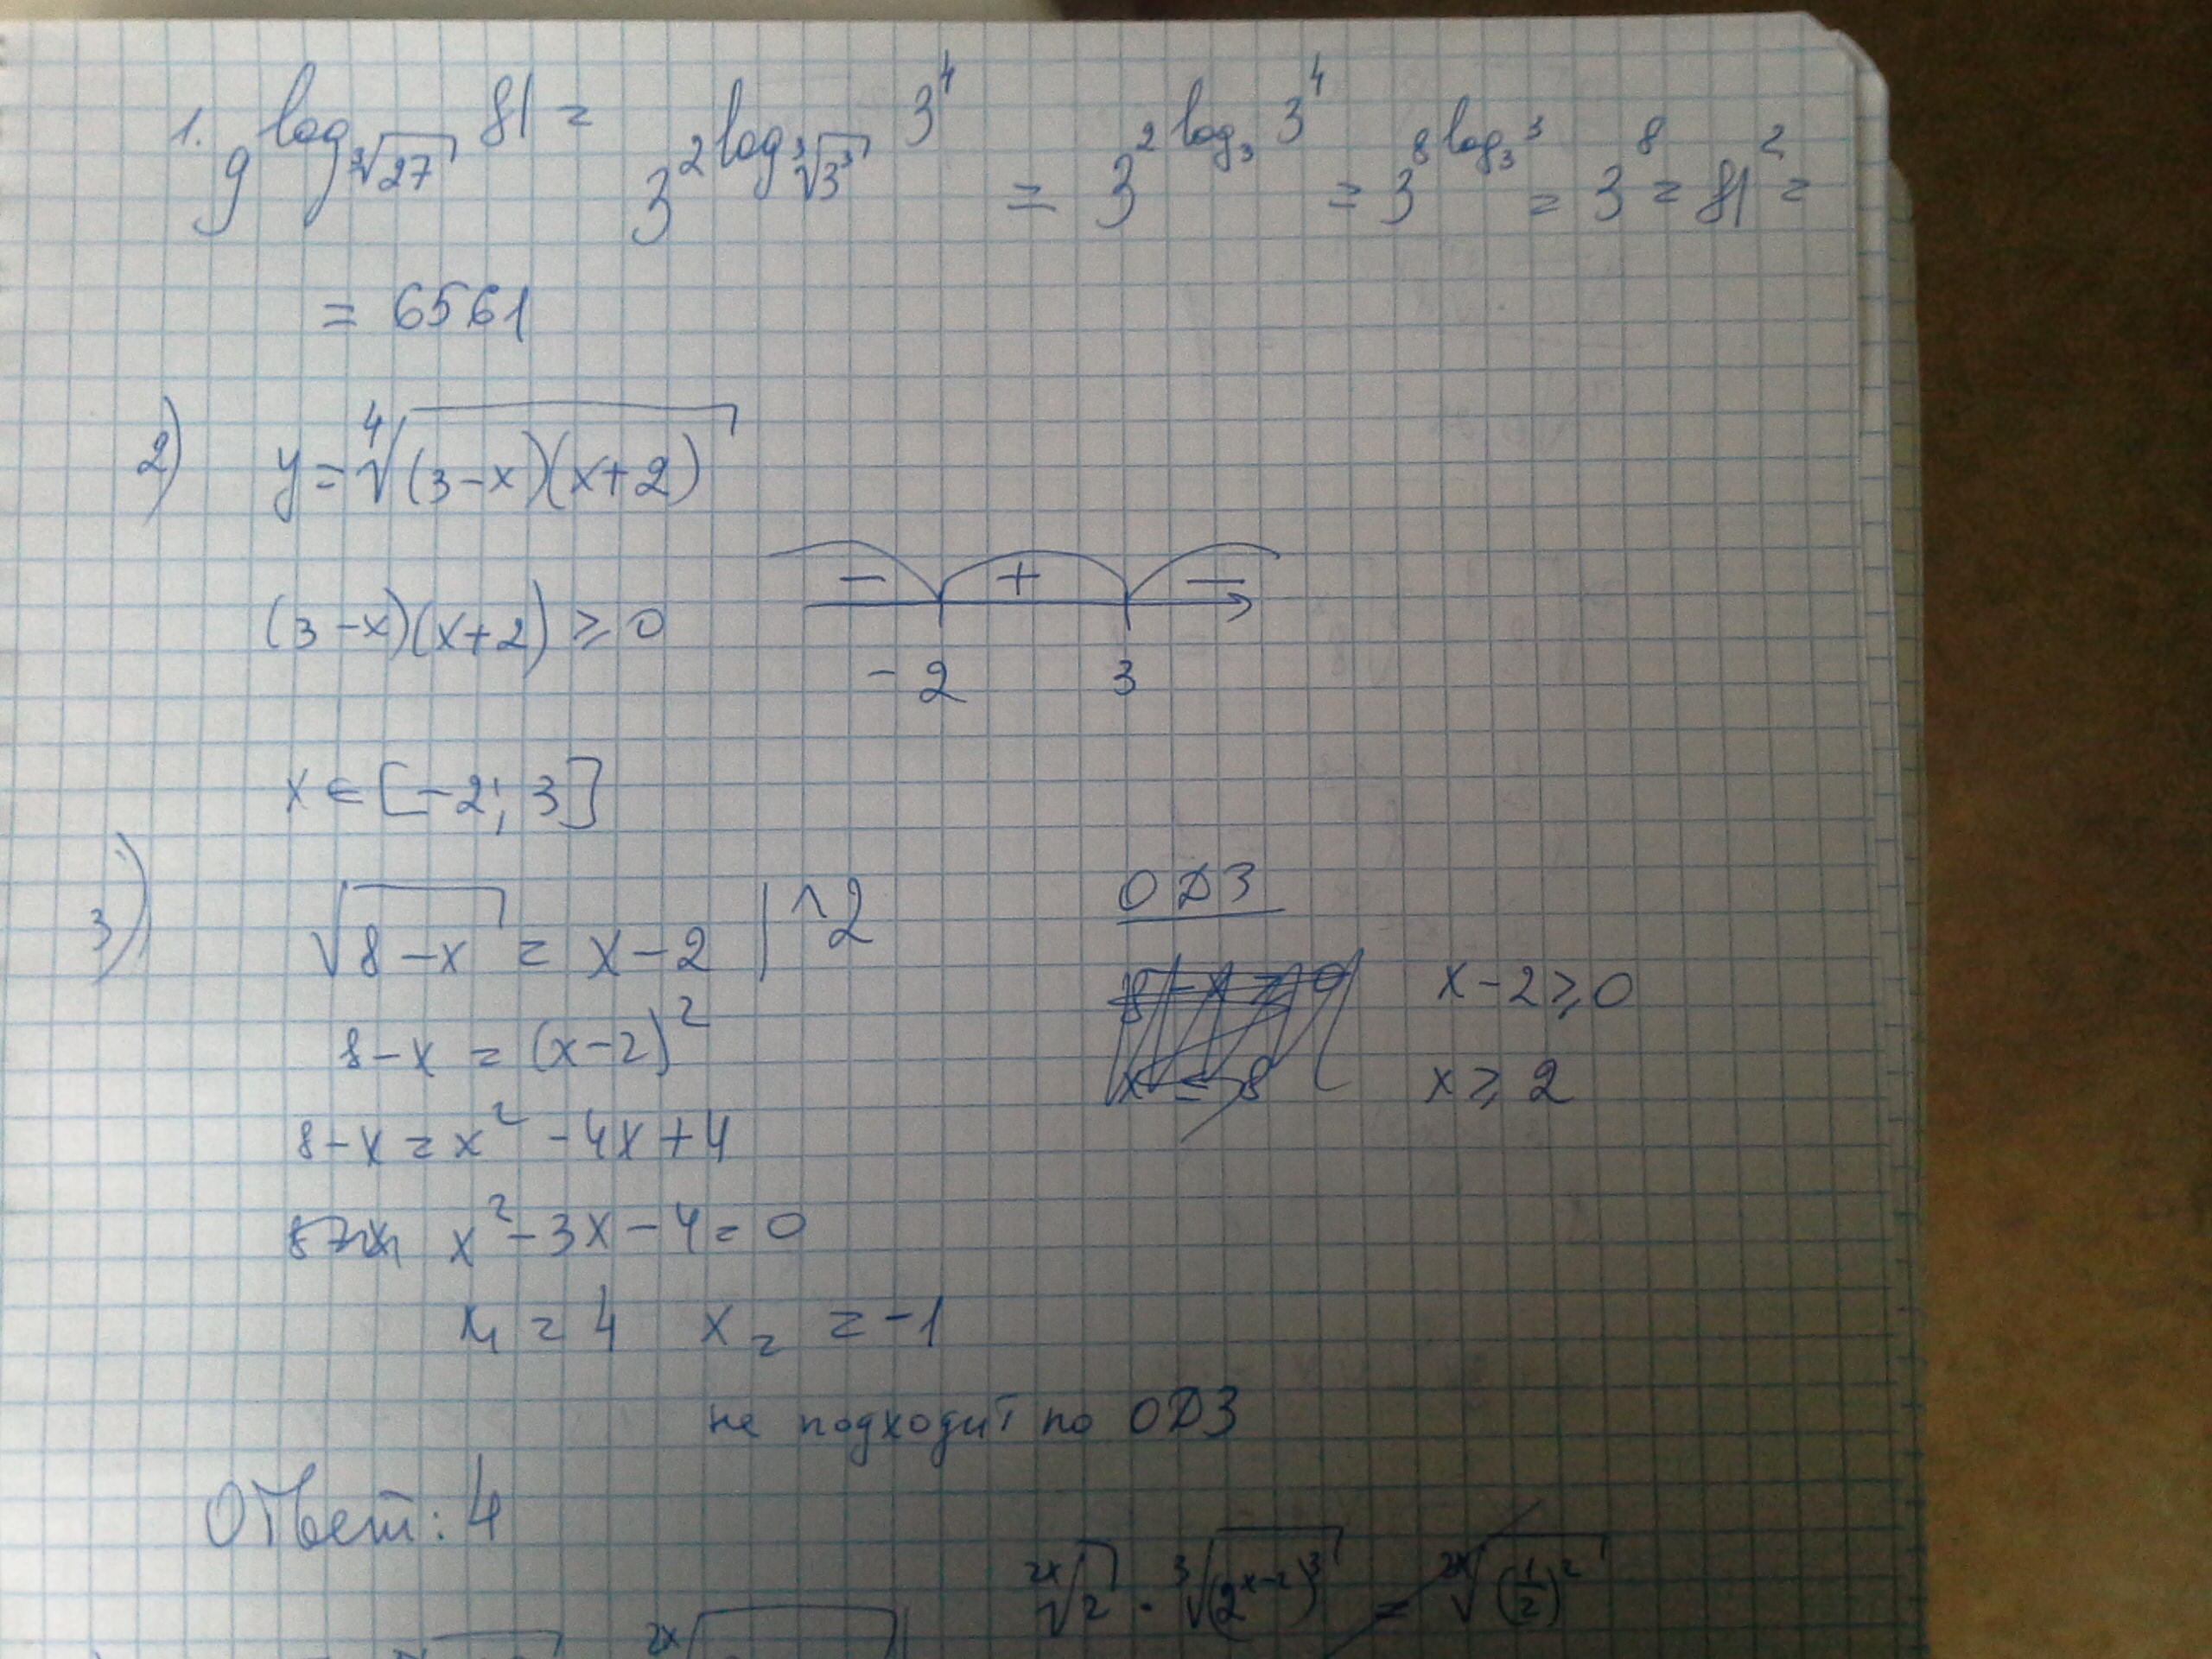 1. 9^log_∛27 81 = 3^2log_∛3³ 3⁴ = 3^2log₃3⁴ = 3^8log₃3 = 3⁸ = 81² =
= 6561
2) y = ⁴√(3-x)(x+2)
(3-x)(x+2) ≥ 0
- + -
-2 3
x ∈ [-2; 3]
3) √8-x = x-2 | ^2
ОДЗ
8-x = (x-2)²
x-2 ≥ 0
8-x = x² - 4x + 4
x ≥ 2
x² - 3x - 4 = 0
x₁ = 4 x₂ = -1
не подходит по ОДЗ
Ответ: 4
²ˣ√2 · ³√(2^x-2)³ = ²ˣ√(1/2)²